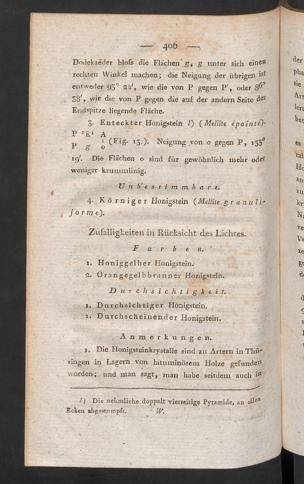 — 406 —
Dodekaëder bloſs die Flächen g, g unter sich einen
rechten Winkel machen; die Neigung der übrigen ist
entweder 93° 22', wie die von P gegen P', oder 86°
38', wie die von P gegen die auf der andern Seite der
Endspitze liegende Fläche.
3. Enteckter Honigstein l) (Mellite épointé).
P 'g' A
P g o (Fig. 13.). Neigung von o gegen P, 133°
19'. Die Flächen o sind für gewöhnlich mehr oder
weniger krummlinig.
Unbestimmbare.
4. Körniger Honigstein (Mellite granuli-
forme).
Zufälligkeiten in Rücksicht des Lichtes.
Farben.
1. Honiggelber Honigstein.
2. Orangegelbbrauner Honigstein.
Durchsichtigkeit.
1. Durchsichtiger Honigstein.
2. Durchscheinender Honigstein.
Anmerkungen.
1. Die Honigsteinkrystalle sind zu Artern in Thü-
ringen in Lagern von bituminösem Holze gefunden
worden; und man sagt, man habe seitdem auch in
l) Die nehmliche doppelt vierseitige Pyramide, an allen
Ecken abgestumpft. W.